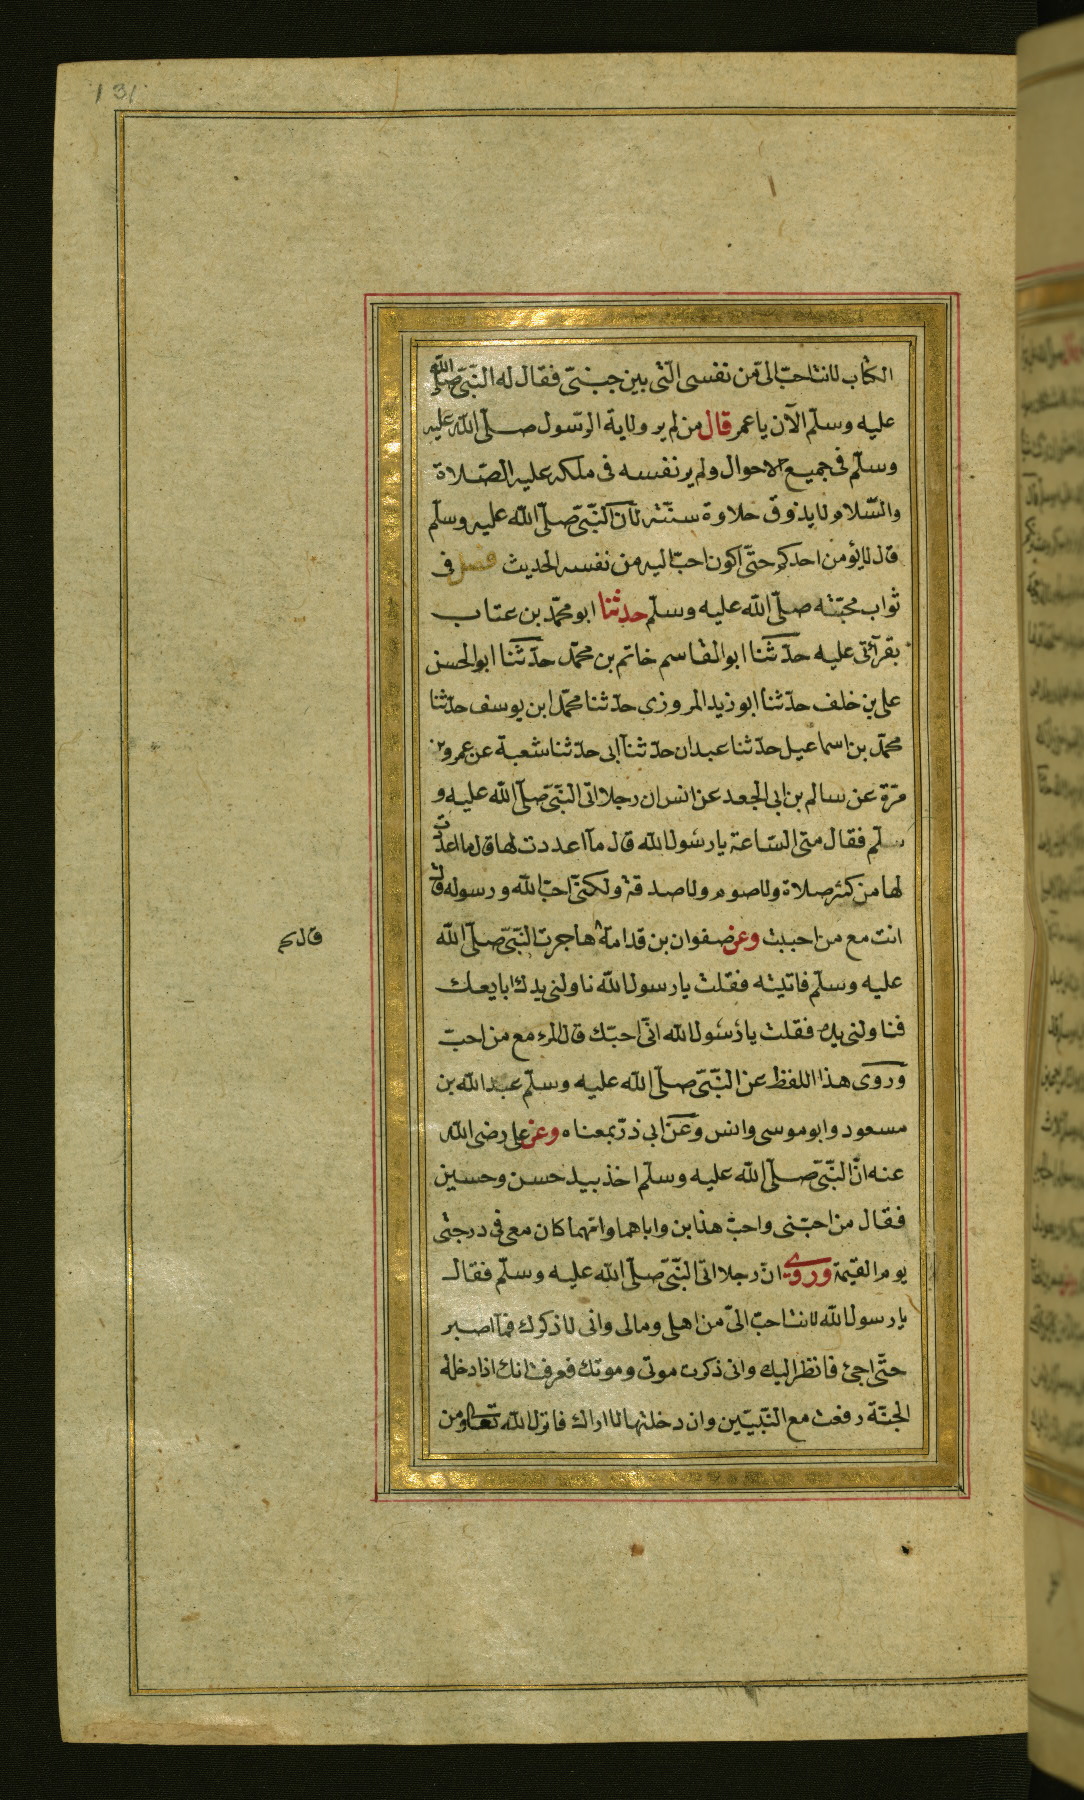 131
الكتاب لانت احبّ الىّ من نفسى الّتى بين جنبىّ فقال له النّبىّ صلّى الله
عليه وسلّم الآن يا عمر قال من لم ير ولاية الرّسول صلّى الله عليه
وسلّم فى جميع الاحوال ولم ير نفسه فى ملكه عليه الصّلاة
والسّلام لا يذوق حلاوة سنّته لانّ النّبىّ صلّى الله عليه وسلّم
قال لا يؤمن احدكم حتّى اكون احبّ اليه من نفسه الحديث فصل فى
ثواب محبّته صلّى الله عليه وسلّم حدثنا ابو محمّد بن عتاب
بقرآئتى عليه حدّثنا ابو القاسم خاتم بن محمّد حدّثنا ابو الحسن
على بن خلف حدّثنا ابو زيد المروزى حدّثنا محمّد ابن يوسف حدّثنا
محمّد بن اسماعيل حدّثنا عبدان حدّثنا ابى حدّثنا شعبة عن عمرو بن
مرّة عن سالم بن ابى الجعد عن انس ان رجلا اتى النّبىّ صلّى الله عليه و
سلّم فقال متى السّاعة يا رسول الله قال ما اعددت لها قال ما اعددت
لها من كثير صلاة ولا صوم ولا صدقة ولكنّى احبّ الله ورسوله قال
انت مع من احببت وعن صفوان بن قدامة هاجرت النّبىّ صلّى الله
قال صح
عليه وسلّم فاتيته فقلت يا رسول الله ناولنى يدك ابايعك
فناولنى يده فقلت يا رسول الله انّى احبّك قال المرء مع من احبّ
وروى هذا اللفظ عن النّبىّ صلّى الله عليه وسلّم عبد الله بن
مسعود وابو موسى وانس وعن ابى ذرّ بمعناه وعن على رضى الله
عنه انّ النّبىّ صلّى الله عليه وسلّم اخذ بيد حسن وحسين
فقال من احبّنى واحبّ هذين واباهما وامّهما كان معى فى درجتى
يوم القيمة وروى انّ رجلا اتى النّبىّ صلّى الله عليه وسلّم فقال
يا رسول الله لانت احبّ الىّ من اهلى ومالى وانى لاذكرك فما اصبر
حتّى اجئ فانظر اليك وانى ذكرت موتى وموتك فعرفت انك اذا دخلت
الجنّة رفعت مع النّبيّين وان دخلتها لا اراك فانزل الله تعالى ومن